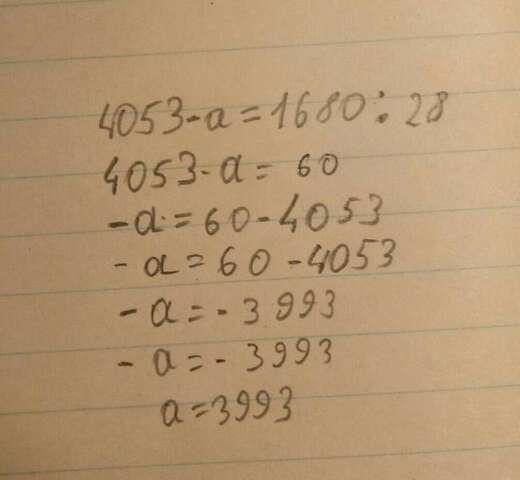 4053-a=1680:28
4053-a= 60
-a=60-4053
-a=60-4053
-a=-3993
-a=-3993
a=3993